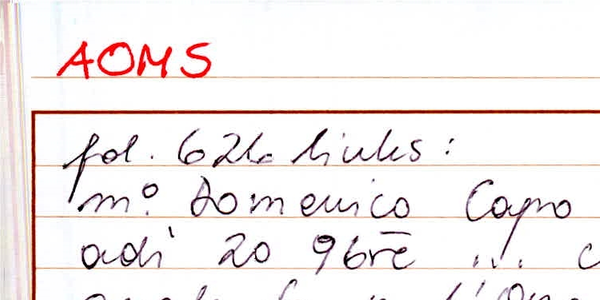 AOMS
fol. 62b links:
mº. Domenico Capo
adì 20 96rē ... c